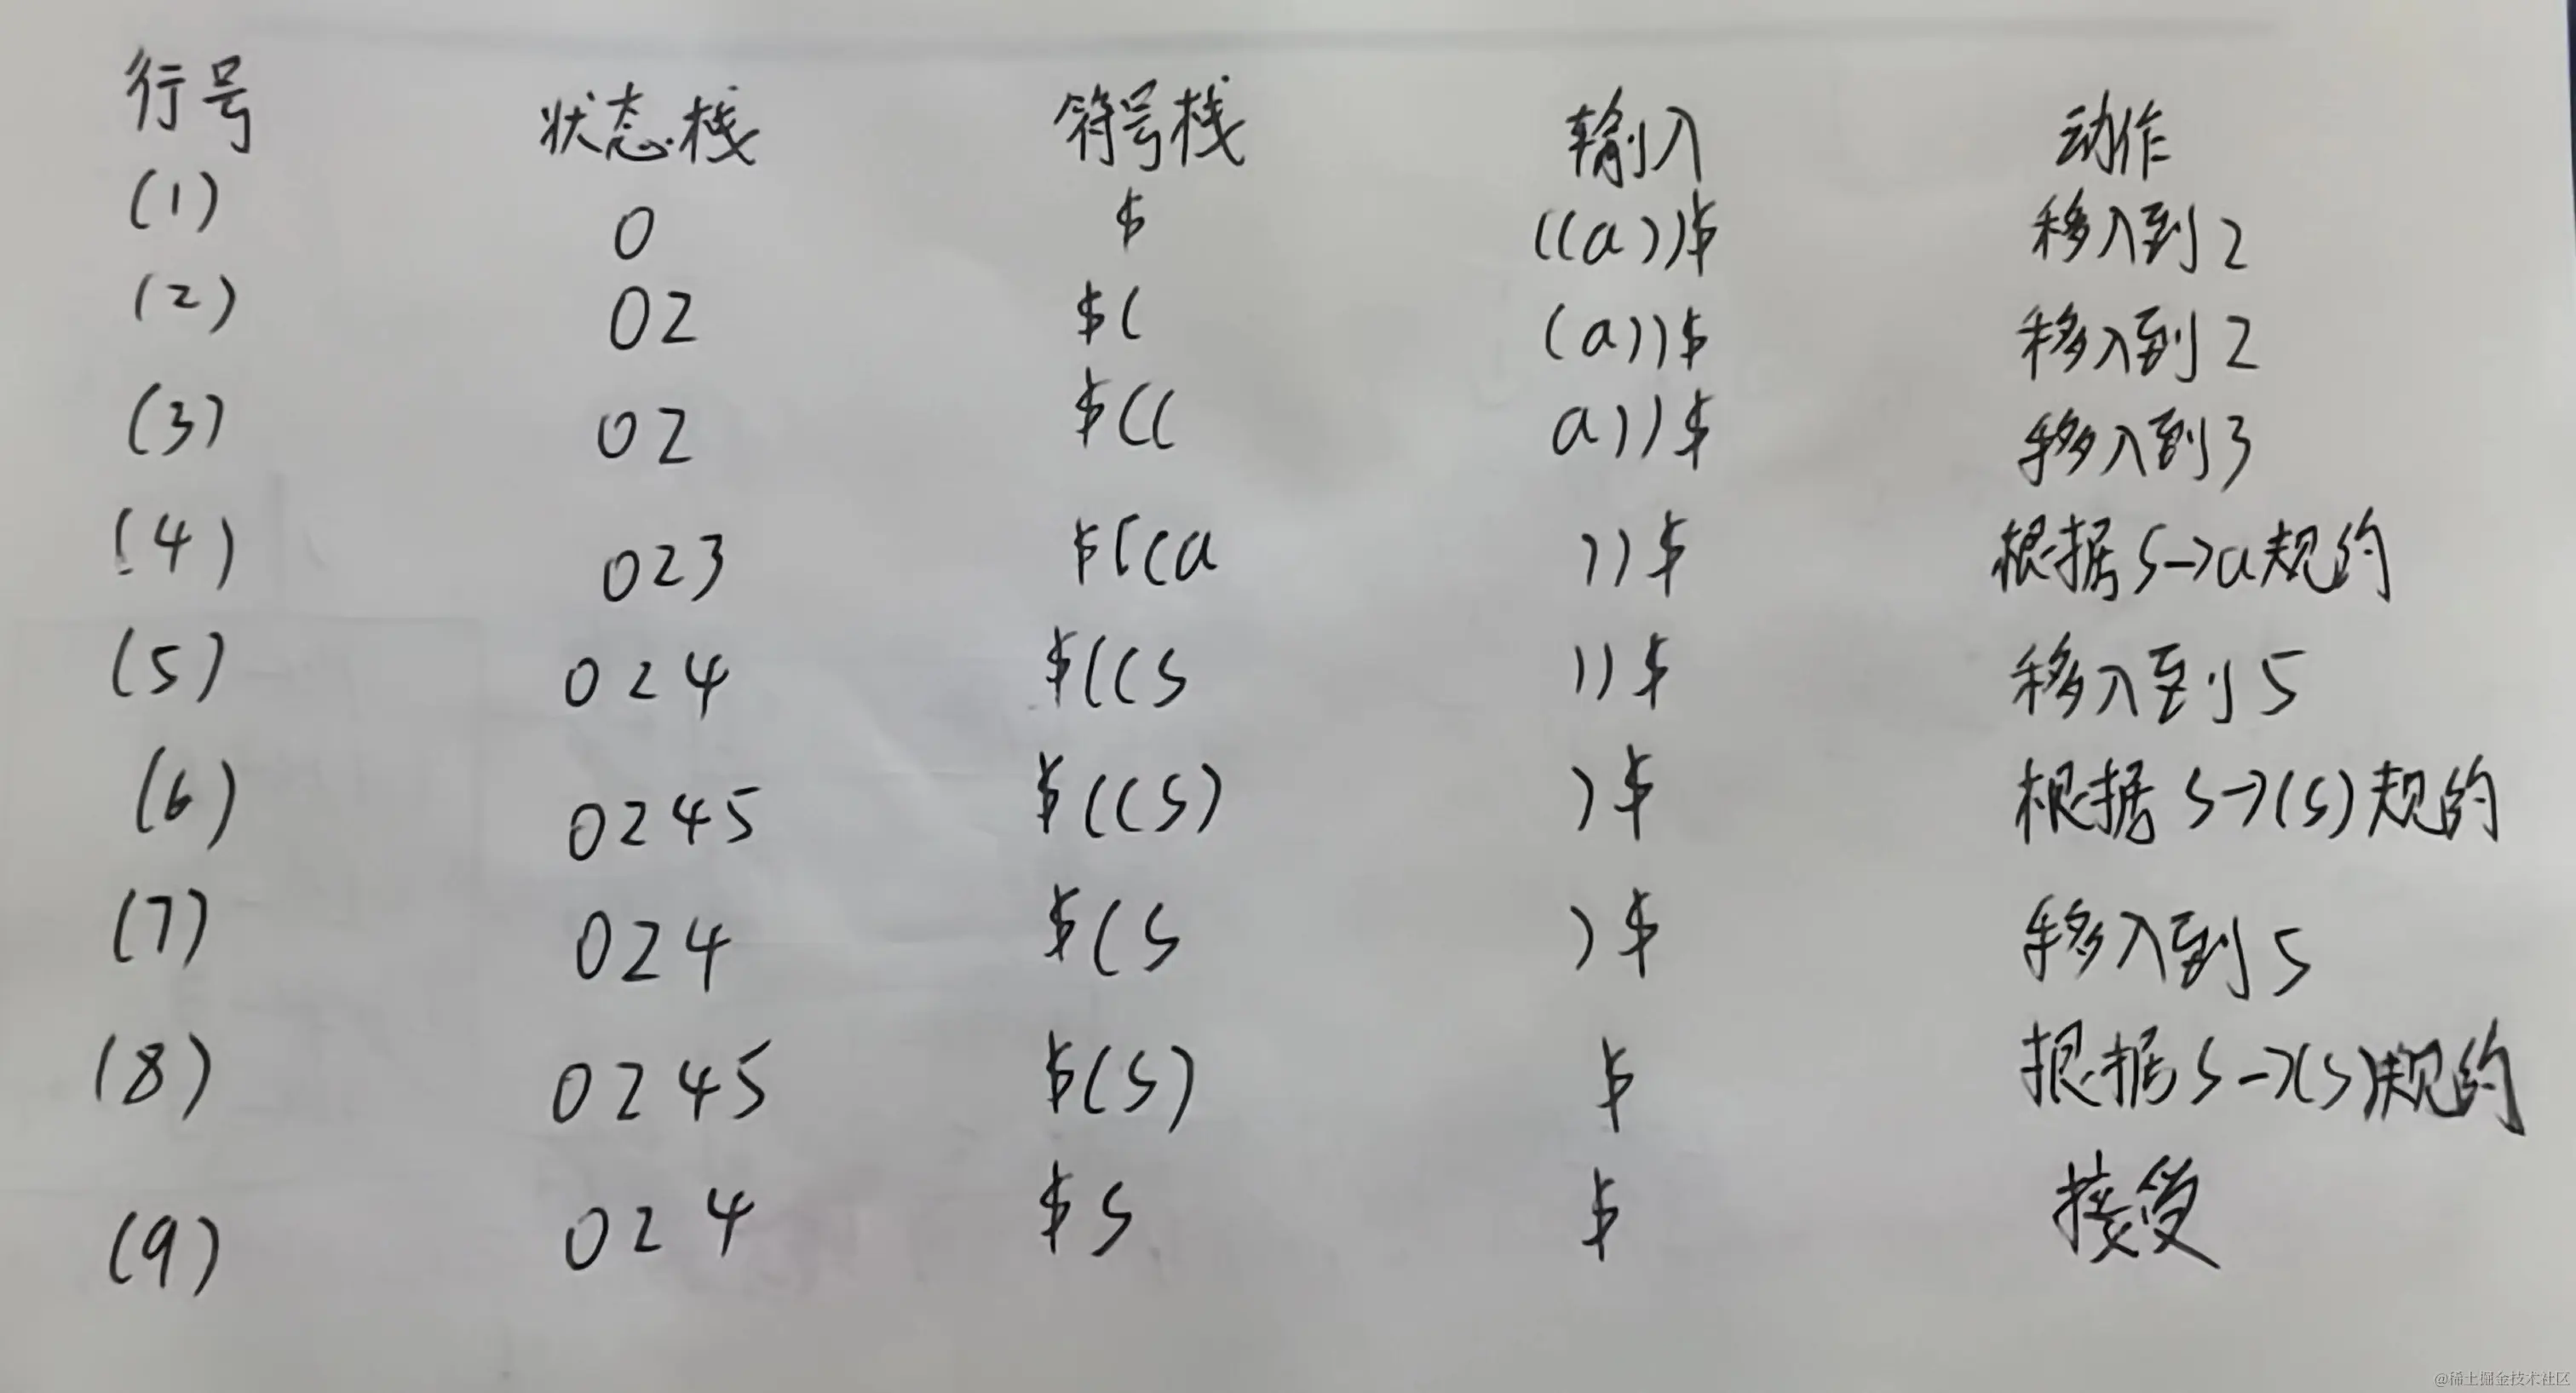 行号 状态栈 符号栈 输入 动作
(1) 0 $ ((a))$ 移入到2
(2) 02 $( (a))$ 移入到2
(3) 02 $(( a))$ 移入到3
(4) 023 $((a ))$ 根据S→a规约
(5) 024 $((S ))$ 移入到5
(6) 0245 $((S) )$ 根据S→(S)规约
(7) 024 $(S )$ 移入到5
(8) 0245 $(S) $ 根据S→(S)规约
(9) 024 $S $ 接受
@稀土掘金技术社区